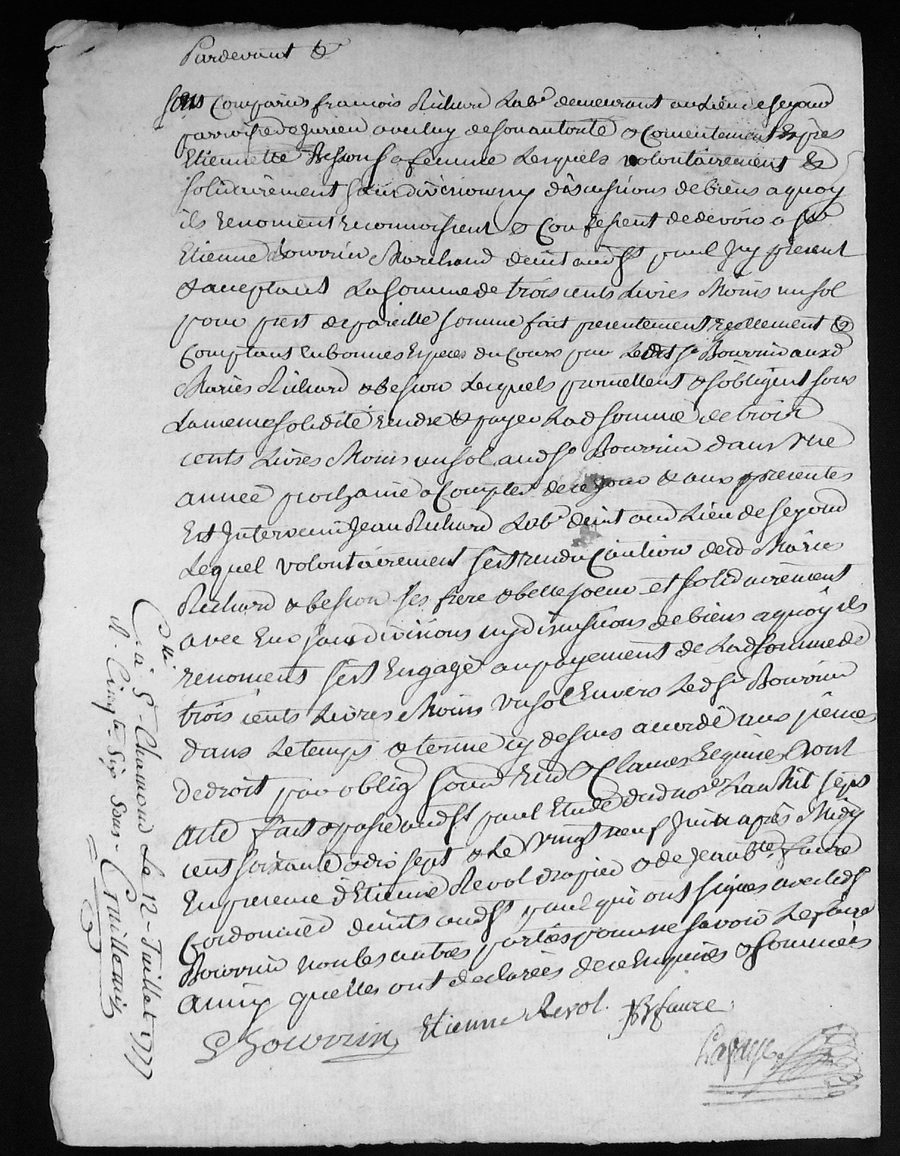 Pardevant &
Sont Comparus françois Richard Lab.r demeurant au Lieu de seyond
parroisse de Jurieu avec luy de son autorité & Consentement Exprès
Etiennette Bession sa femme Lesquels volontairement &
solidairement sans division ny discussions de biens a quoy
ils renoncent reconnoissent & Confessent de devoir a S.r
Etienne Bouvrin Marchand de audS.t paul Icy present
& acceptant La somme de trois cents Livres Moins un sol
pour prest de pareille somme fait presentement réellement &
Comptant en bonnes Especes du Cours par Ledit S.r Bouvrin auxd
Mariés Richard & bession Lesquels promettent & s'obligent sous
La meme solidité rendre & payer Lad somme de trois
cents Livres Moins un sol aud S.r Bouvrin dans une
année prochaine a Compter de ce jour & aux presentes
Est Intervenu Jean Richard Lab.r aud Lieu de seyond
Lequel volontairement s'est rendu Caution desd Mariés
Richard & bession ses frere & belle soeur et solidairement
avec Eux sans divisions ny discussions de biens a quoy ils
renoncent s'est Engagé au payement de Lad somme de
trois cents Livres Moins un sol Envers Led S.r Bouvrin
dans Le temps & terme cy dessus accordé aux peines
de droit par oblig soum & Clauses Requises Dont
acte fait & passé aud S.t paul Etude dud no.re L'an Mil sept
cent soixante & dix sept & Le vingt neuf Juin après Midy
En presence d'Etienne Revol drapier & de Jean b.te faure
Cordonnier audS.t paul qui ont signés avec led S.r
Bouvrin non les autres parties pour ne savoir Le faire
ainsy quelles ont declarées de ce Enquises & sommées
E Bouvrin Etienne Revol. JBfaure
Lafaye
C.llé à S.t Chamond Le 12 Juillet 1777
R. Cinq.te Six Sous Guillemin